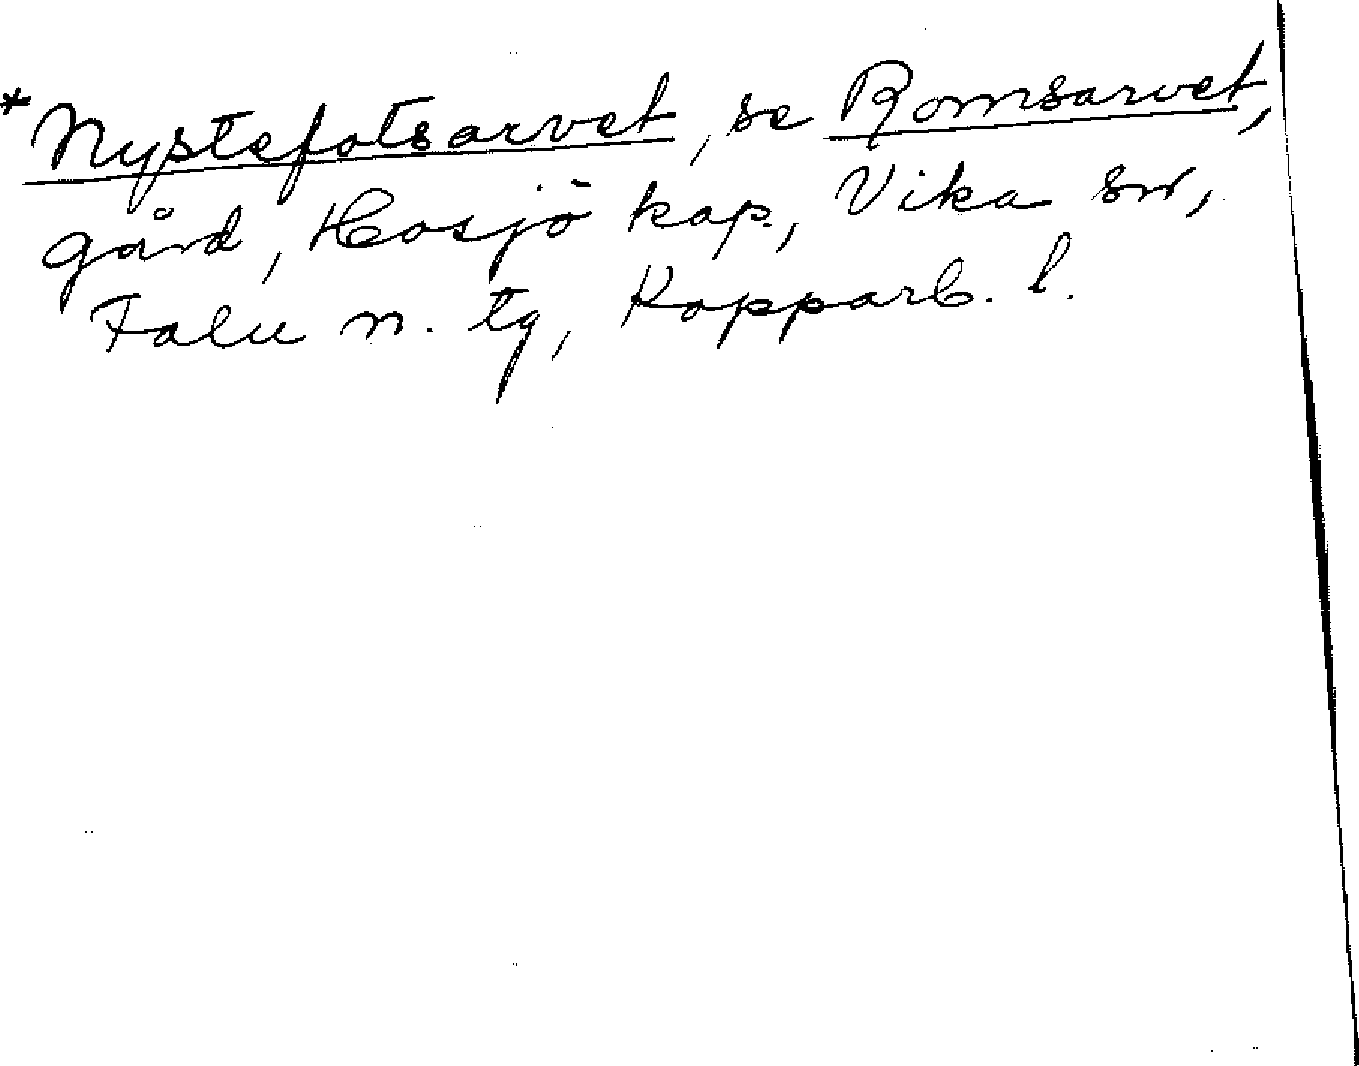 *Nystefotsarvet, se Romsarvet,
gård, Hosjö kap., Vika sn,
Falu n. tg, Kopparb. l.